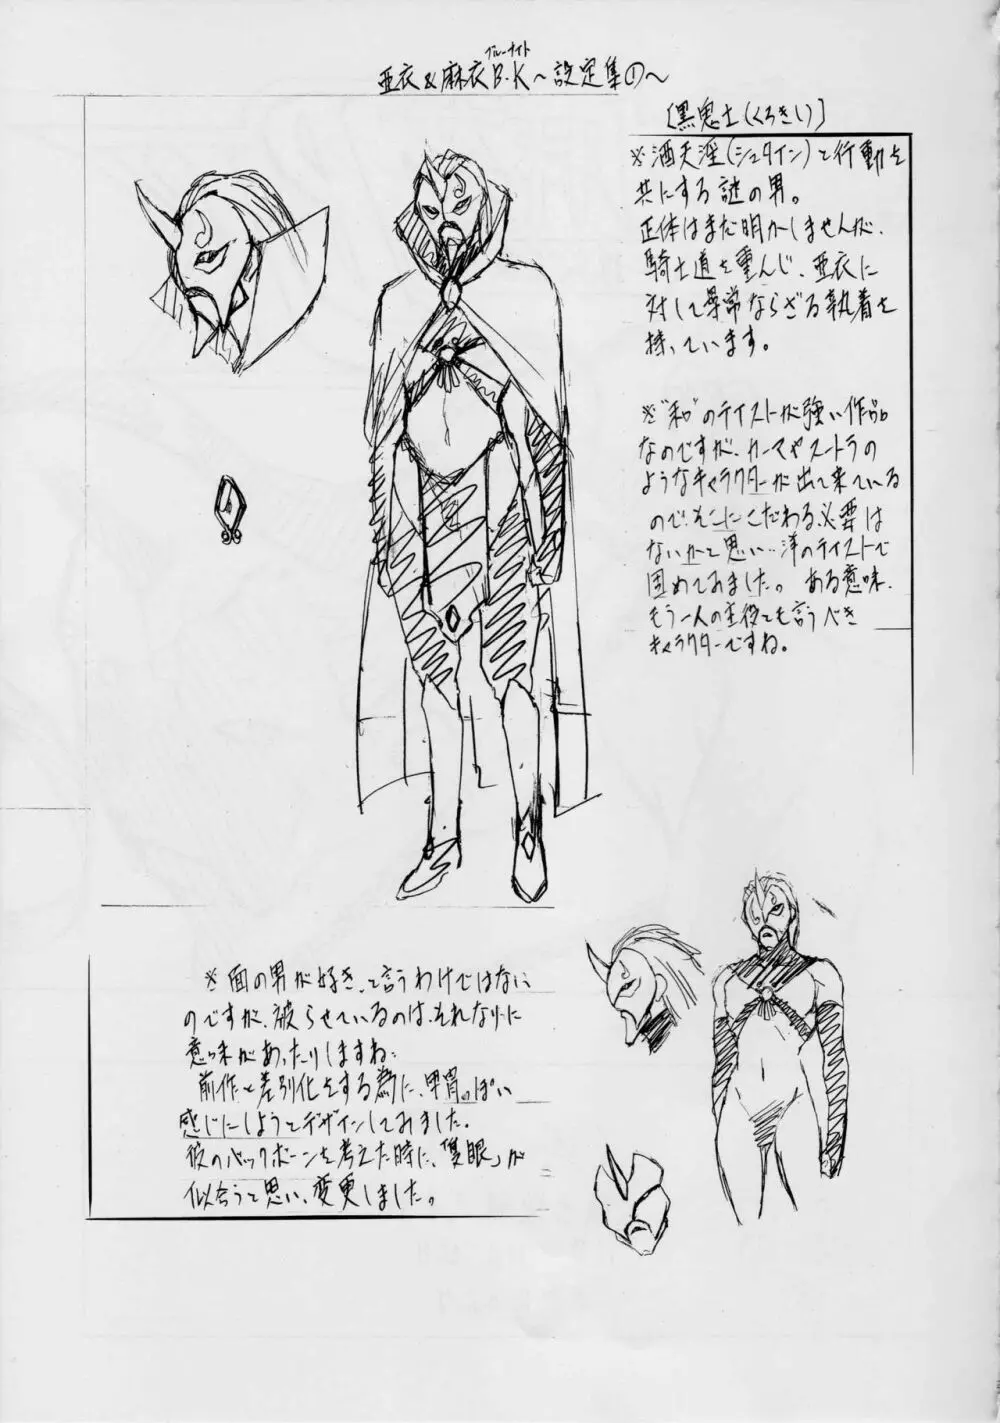 ブルーナイト
亜衣&麻衣B.K～設定集①～
[黒鬼士(くろきし)]
※酒天淫(シュタイン)と行動を
共にする謎の男。
正体はまだ明かしませんが、
騎士道を重んじ、亜衣に
対して異常ならざる執着を
持っています。
※"和"のテイストが強い作品
なのですが、カーマやスートラの
ようなキャラクターが出て来ている
ので、そこにこだわる必要は
ないかと思い‥洋のテイストで
固めてみました。 ある意味、
もう一人の主役とも言うべき
キャラクターですね。
※面の男が好き、って言うわけではない
のですが、被らせているのは、それなりに
意味があったりしますね‥
前作と差別化をする為に、甲冑っぽい
感じにしようとデザインしてみました。
彼のバックボーンを考えた時に、「隻眼」が
似合うと思い、変更しました。